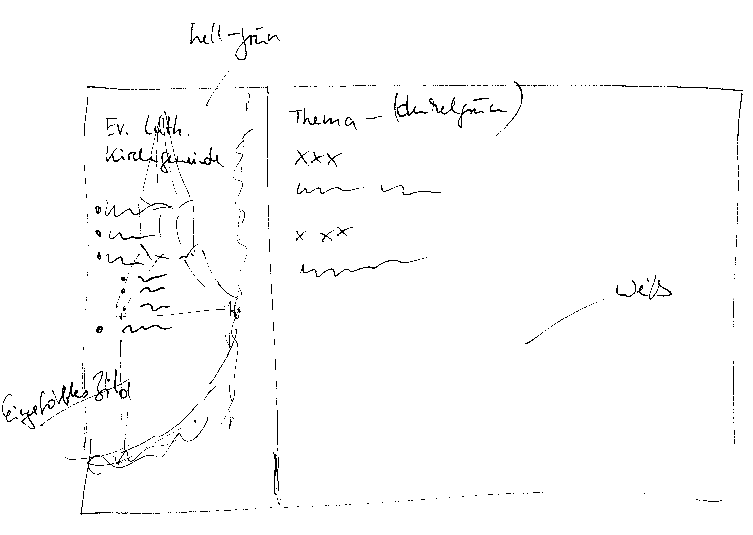 hell-grün
Ev. Luth.
Kirchgemeinde
Thema - (dunkelgrün)
xxx
x xx
weiß
Eingefärbtes Bild